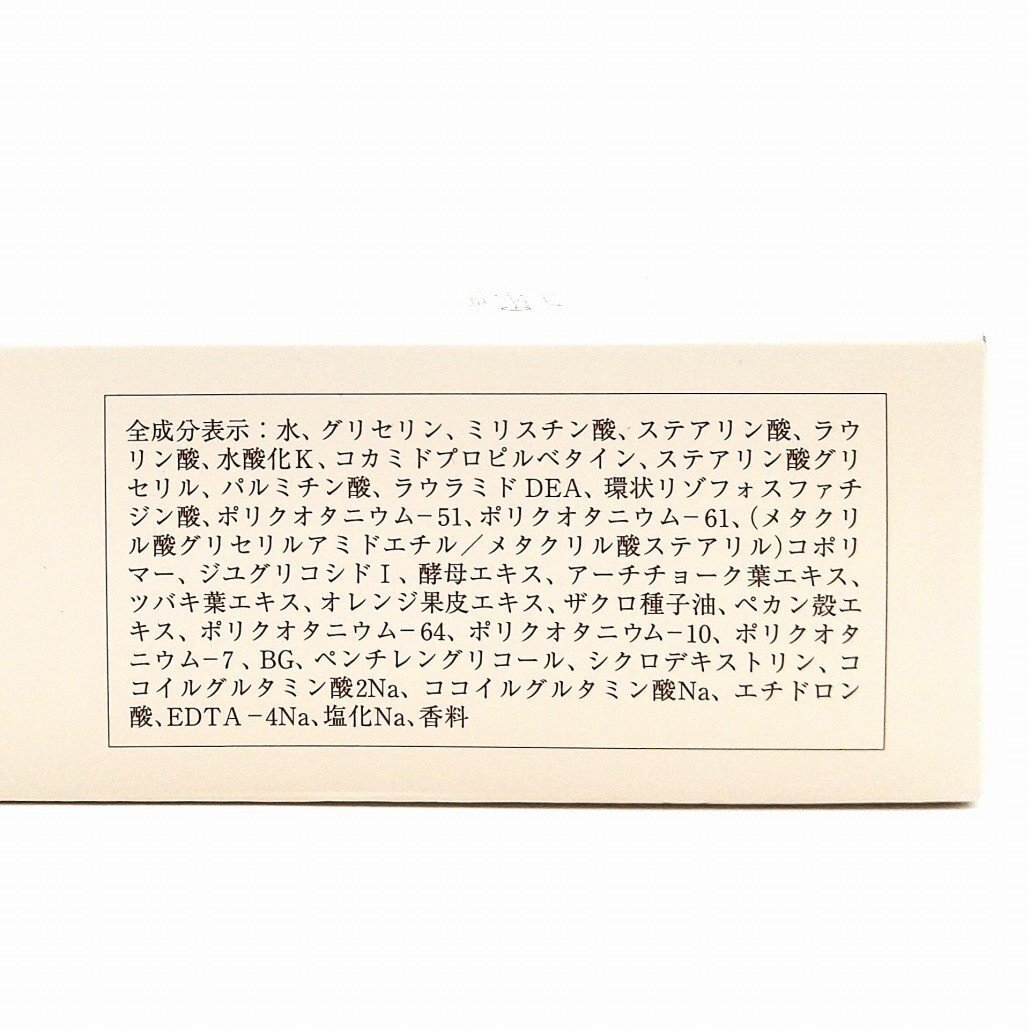 全成分表示：水、グリセリン、ミリスチン酸、ステアリン酸、ラウ
リン酸、水酸化K、コカミドプロピルベタイン、ステアリン酸グリ
セリル、パルミチン酸、ラウラミドDEA、環状リゾフォスファチ
ジン酸、ポリクオタニウム−51、ポリクオタニウム−61、(メタクリ
ル酸グリセリルアミドエチル／メタクリル酸ステアリル)コポリ
マー、ジユグリコシドI、酵母エキス、アーチチョーク葉エキス、
ツバキ葉エキス、オレンジ果皮エキス、ザクロ種子油、ペカン殻エ
キス、ポリクオタニウム−64、ポリクオタニウム−10、ポリクオタ
ニウム−7、BG、ペンチレングリコール、シクロデキストリン、コ
コイルグルタミン酸2Na、ココイルグルタミン酸Na、エチドロン
酸、EDTA−4Na、塩化Na、香料